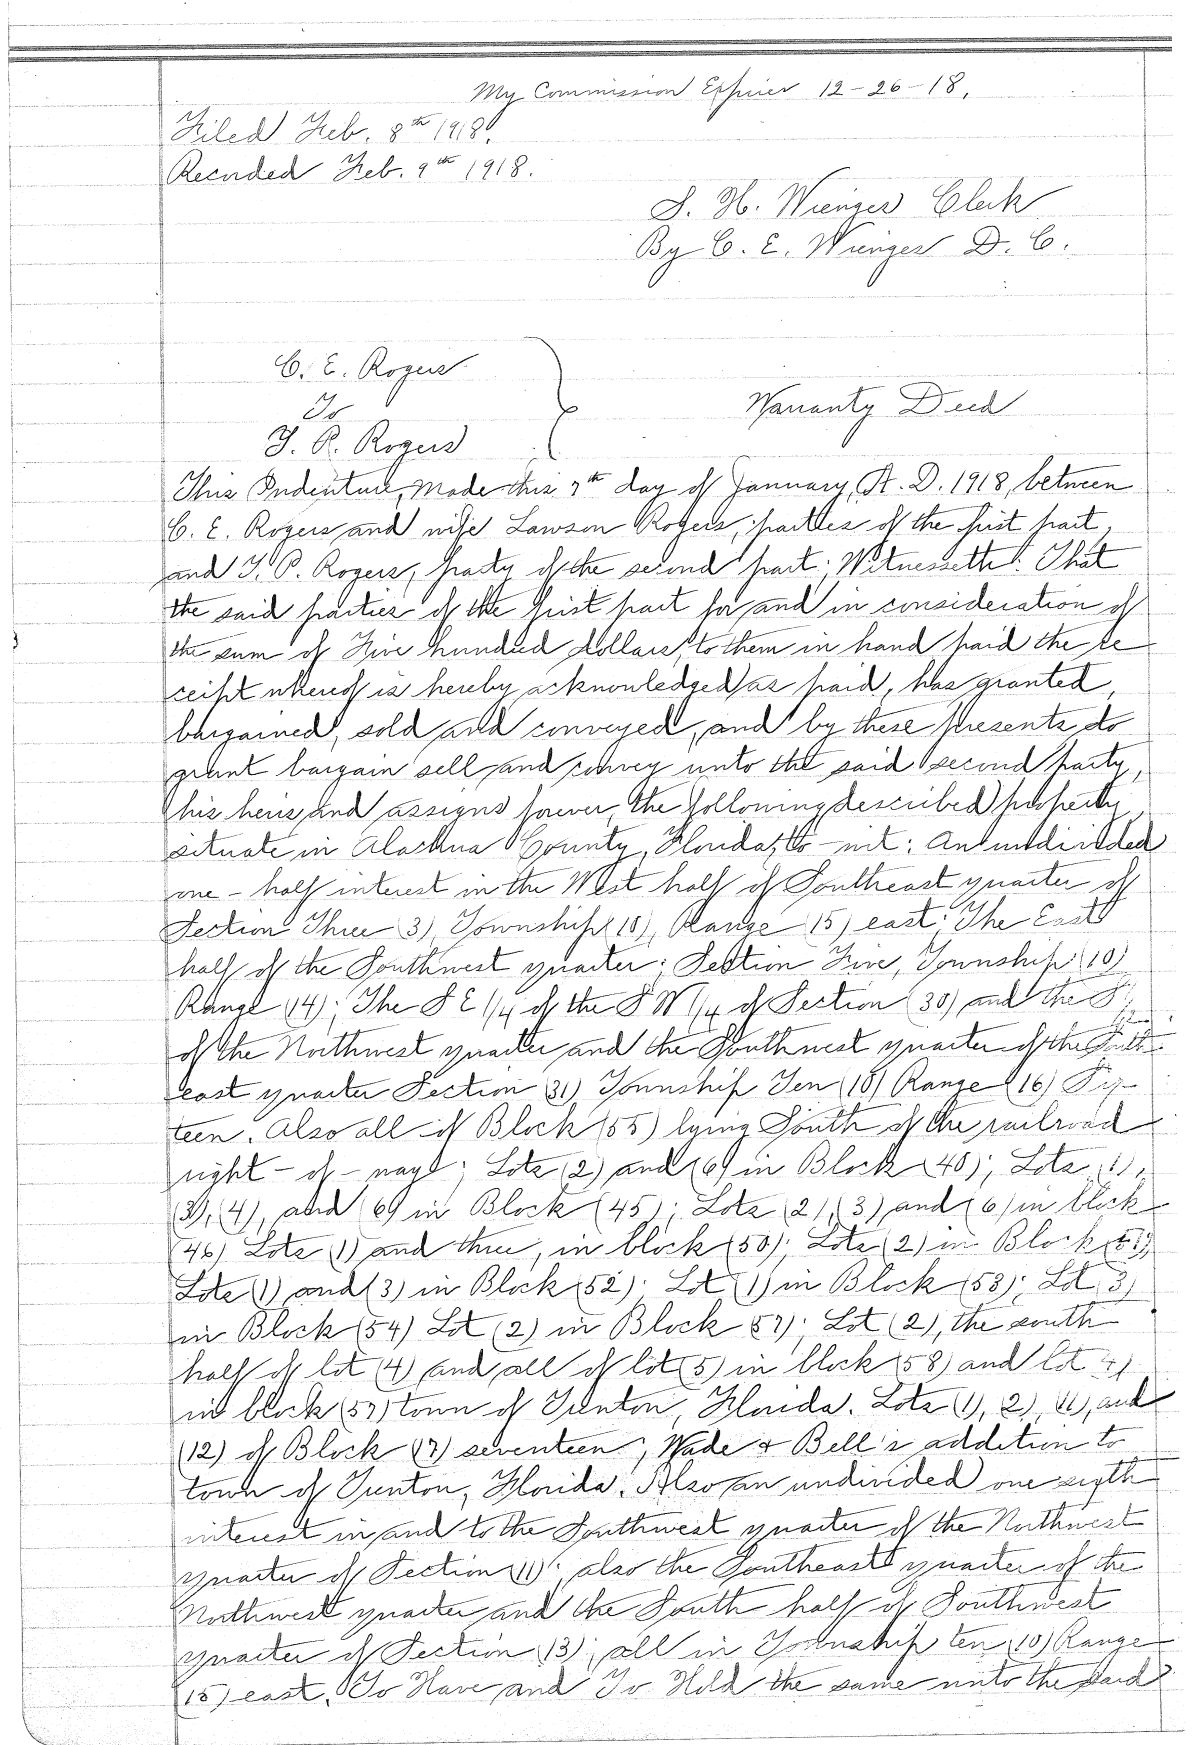 My Commission Expires 12-26-18.
Filed Feb. 8th 1918.
Recorded Feb. 9th 1918.
S. H. Wienges Clerk
By C. E. Wienges D. C.
C. E. Rogers
To
Warranty Deed
T. R. Rogers
This Indenture, Made this 7th day of January, A. D. 1918, between
C. E. Rogers and wife Lawson Rogers, parties of the first part,
and T. P. Rogers, party of the second part; Witnesseth: That
the said parties of the first part for and in consideration of
the sum of Five hundred dollars, to them in hand paid the re
ceipt whereof is hereby acknowledged as paid, has granted,
bargained, sold and conveyed, and by these presents do
grant bargain sell and convey unto the said second party,
his heirs and assigns forever, the following described property
situate in Alachua County, Florida, to-wit: An undivided
one-half interest in the West half of Southeast quarter of
Section Three (3), Township (10), Range (15) east; The East
half of the Southwest quarter; Section Five, Township (10)
Range (14); The S E 1/4 of the S W 1/4 of Section (30) and the S 1/2
of the Northwest quarter and the Southwest quarter of the South
east quarter Section (31) Township Ten (10) Range (16) Six-
teen. Also all of Block (55) lying South of the railroad
right-of-way; Lots (2) and (6) in Block (40); Lots (1),
(3), (4), and (6) in Block (45); Lots (2), (3) and (6) in block
(46) Lots (1) and three, in block (50); Lots (2) in Block (51)
Lots (1) and (3) in Block (52); Lot (1) in Block (53); Lot (3)
in Block (54) Lot (2) in Block (57); Lot (2), the south
half of lot (4) and all of lot (5) in block (58) and lot (4)
in block (57) town of Trenton, Florida. Lots (1), (2), (11), and
(12) of Block (17) seventeen; Wade & Bell's addition to
town of Trenton, Florida. Also an undivided one sixth
interest in and to the Southwest quarter of the Northwest
quarter of Section (11); also the Southeast quarter of the
Northwest quarter and the South half of Southwest
quarter of Section (13); all in Township ten (10) Range
(15) east. To Have and To Hold the same unto the said